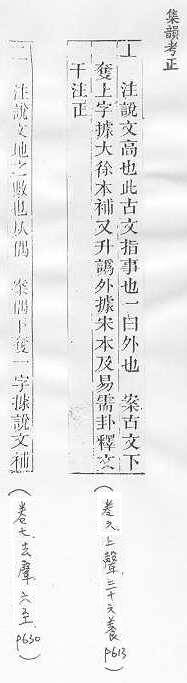 集韻考正
丄 注說文高也此古文指事也一曰外也 案古文下
奪上字據大徐本補又升譌外據宋本及易需卦釋文
干注正
(卷六、上聲、三十六養 P613)
二 注說文地之數也从偶 案偶下奪一字據說文補
(卷七、去聲、六至、P630)